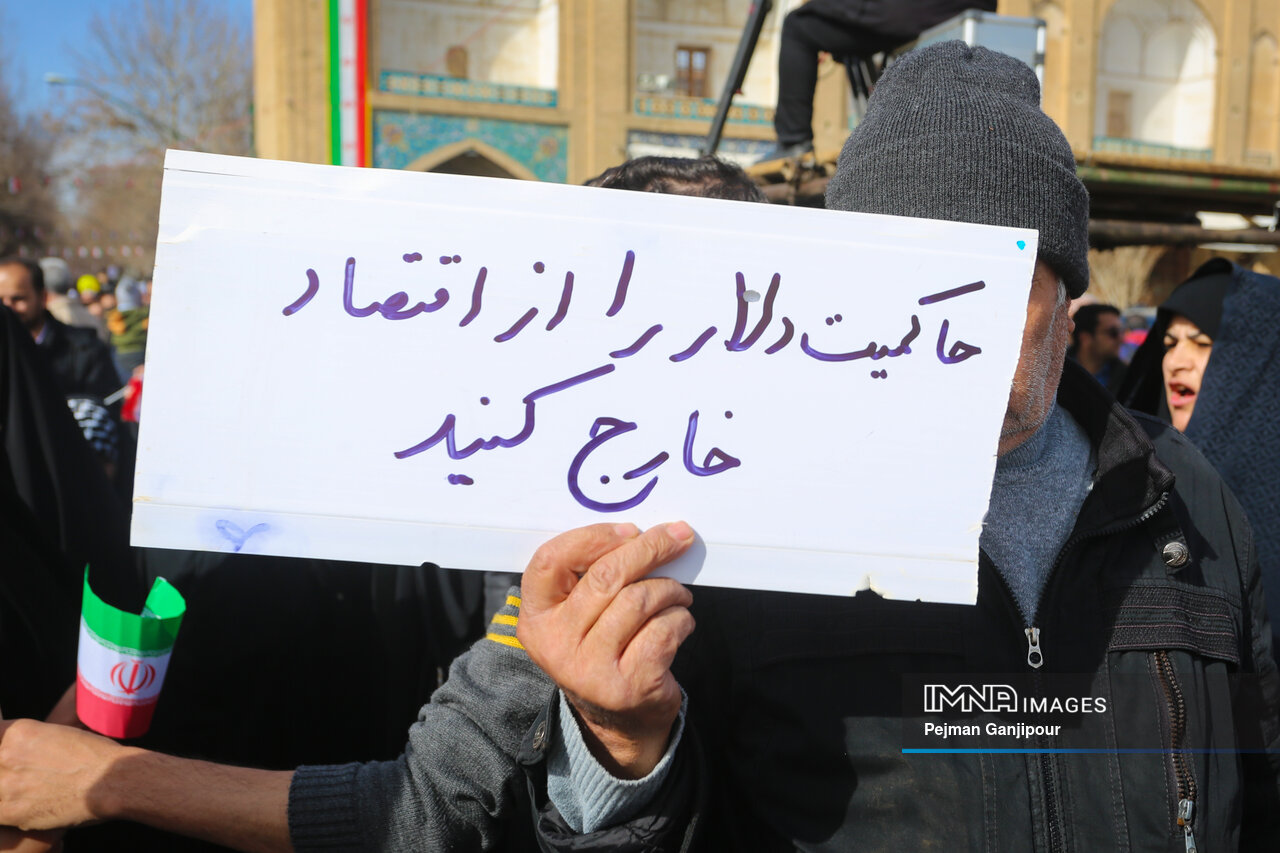 حاکمیت دلار را از اقتصاد
خارج کنید
IMNA IMAGES
Pejman Ganjipour